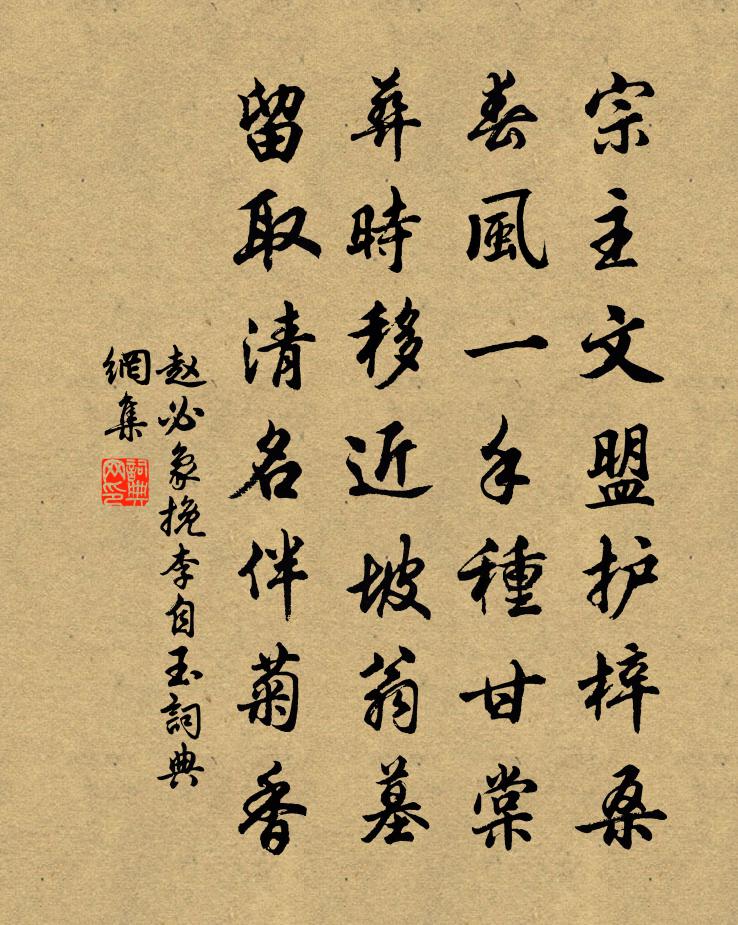 宗主文盟护梓桑
春風一手種甘棠
葬時移近坡翁墓
留取清名伴菊香
赵必象挽李自玉詞典
網集
詞典
网印